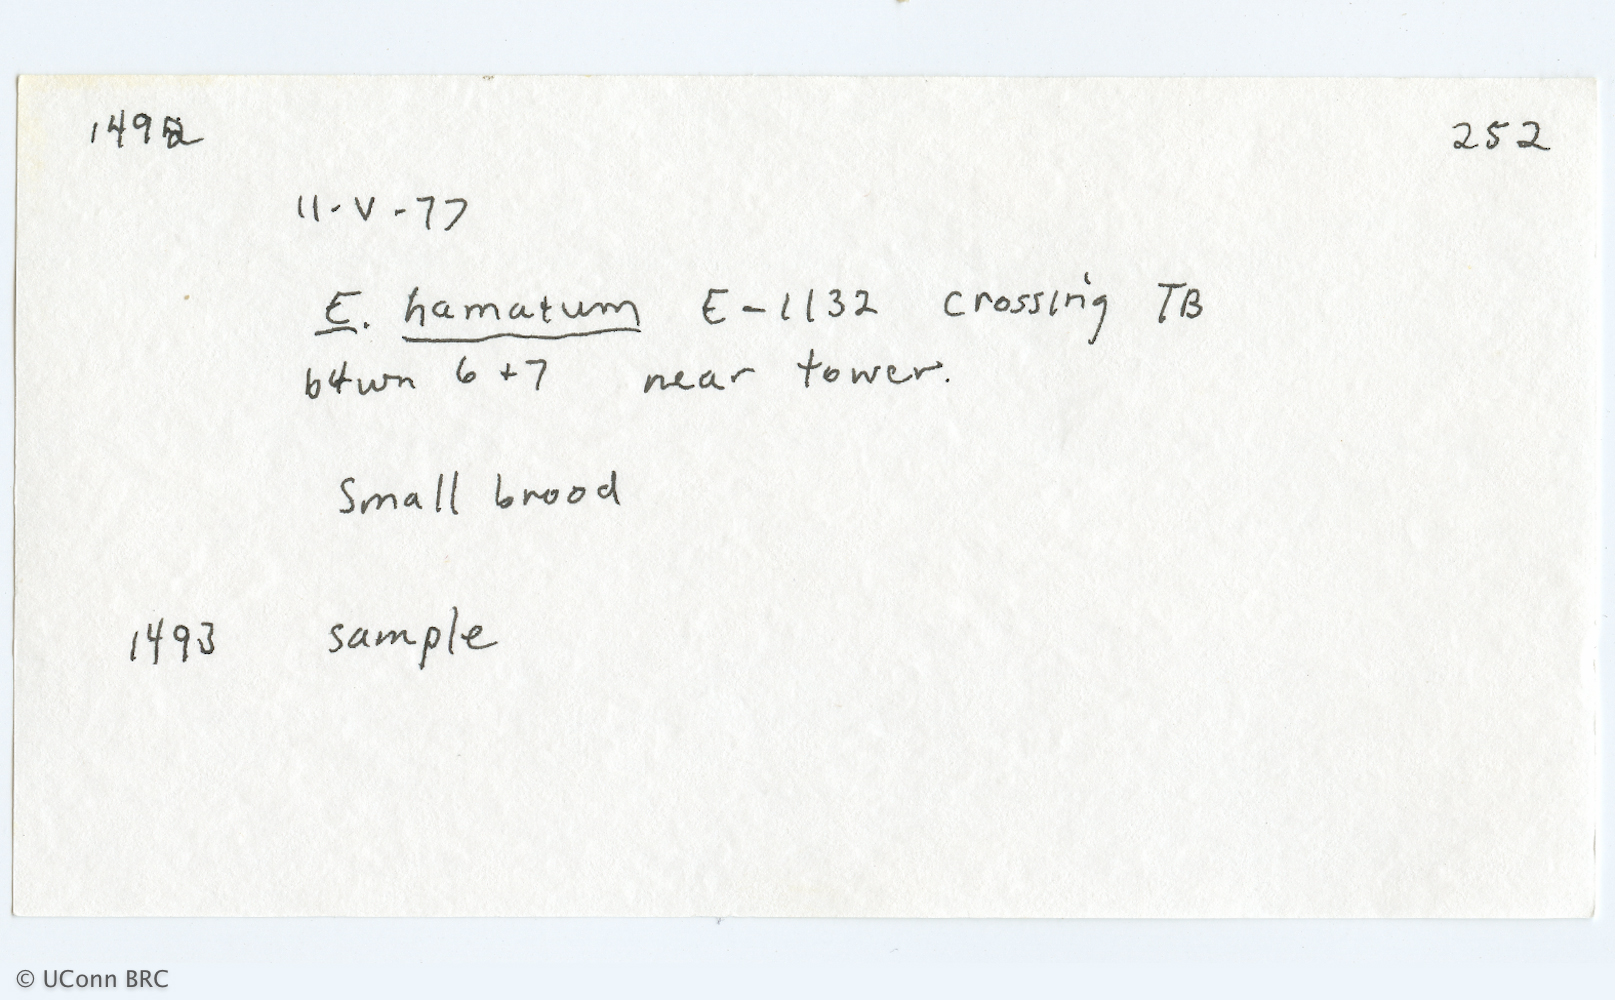 1492
252
11-V-77
E. hamatum E-1132 crossing TB
btwn 6+7 near tower.
Small brood
1493 sample
© UConn BRC